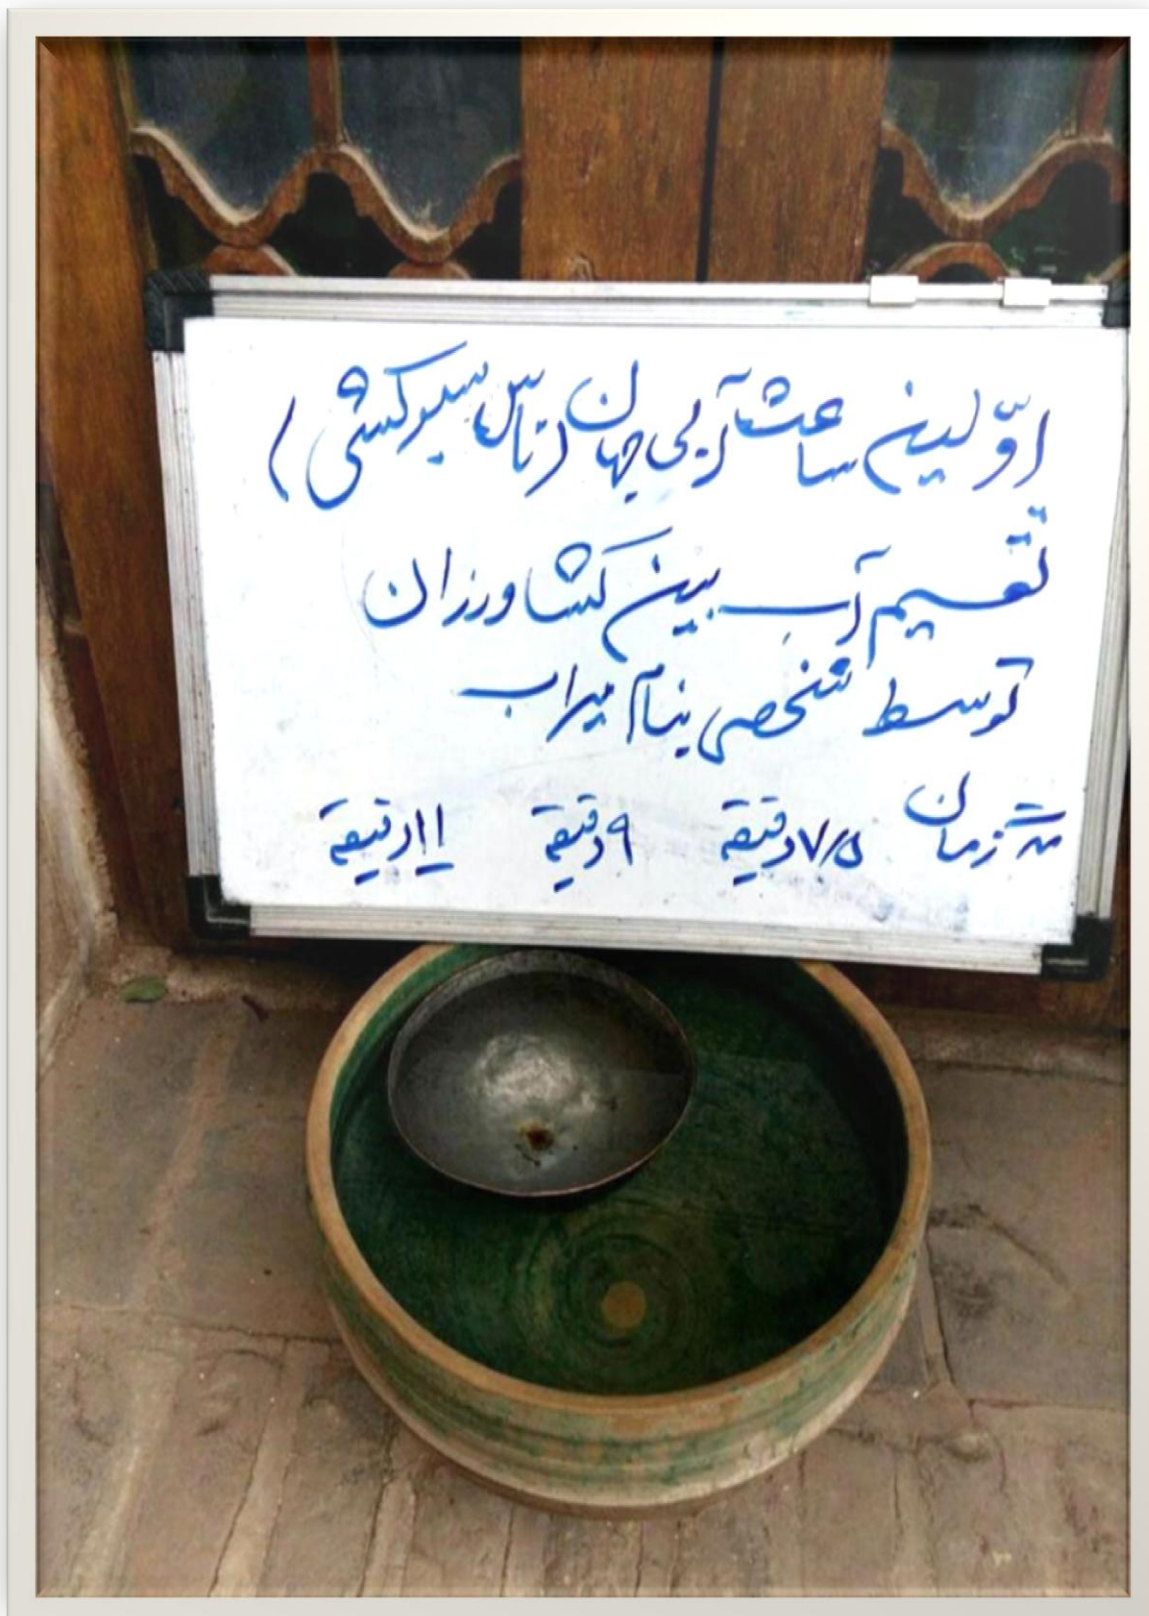 اوّلین ساعت آبی جهان (تاس سبوکشی)
تقسیم آب بین کشاورزان
توسط شخصی بنام میراب
مدت زمان ۷/۵ دقیقه ۹ دقیقه ۱۱ دقیقه